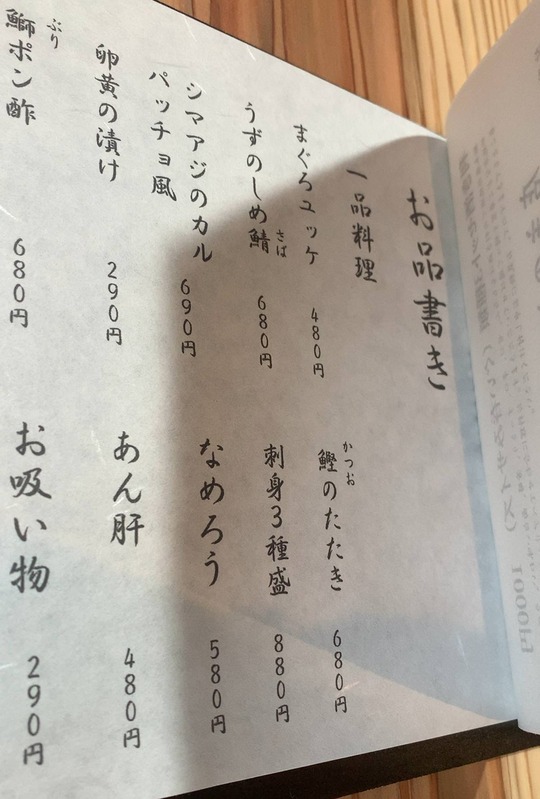 お品書き
一品料理
まぐろユッケ 480円
うずのしめ鯖 680円
さば
シマアジのカル
パッチョ風 690円
卵黄の漬け 290円
鰤ポン酢 680円
ぶり
鰹のたたき 680円
かつお
刺身3種盛 880円
なめろう 580円
あん肝 480円
お吸い物 290円
1000円